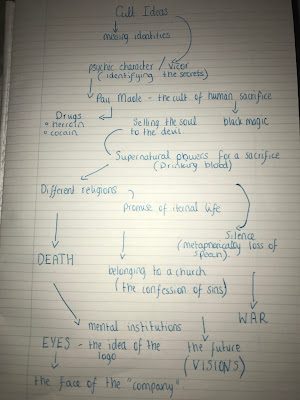 Cult Ideas
missing identities
psychic character / Vicor
(identifying the secrets)
Pai Maele - the cult of human sacrifice
Drugs
• herroin
• cocain
Selling the soul
to the devil
black magic
Supernatural powers for a sacrifice
(Drinking blood)
Different religions
Promise of itanal life
Silence
(metaphorically loss of
speech)
DEATH
belonging to a church
(the confession of sins)
WAR
mental institutions
EYES - the idea of the
logo
the future
(VISIONS)
the face of the "company"